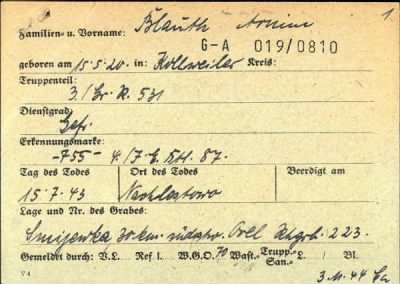 1.
Familien- u. Vorname: Blauth Armin
G-A 019/0810
geboren am 15.5.20. in: Kollweiler Kreis:
Truppenteil:
3./Gr. R. 521
Dienstgrad:
Gefr.
Erkennungsmarke:
-755- 4./7. E. 87.
Tag des Todes Ort des Todes Beerdigt am
15.7.43
Lage und Nr. des Grabes:
Smijewka 30 km. südostw. Orel 223.
Gemeldet durch: V.L. Ref 1. W.G.O. 70 Wast.- Trupp.- L. Bl.
San.-
V 4
3.11.44